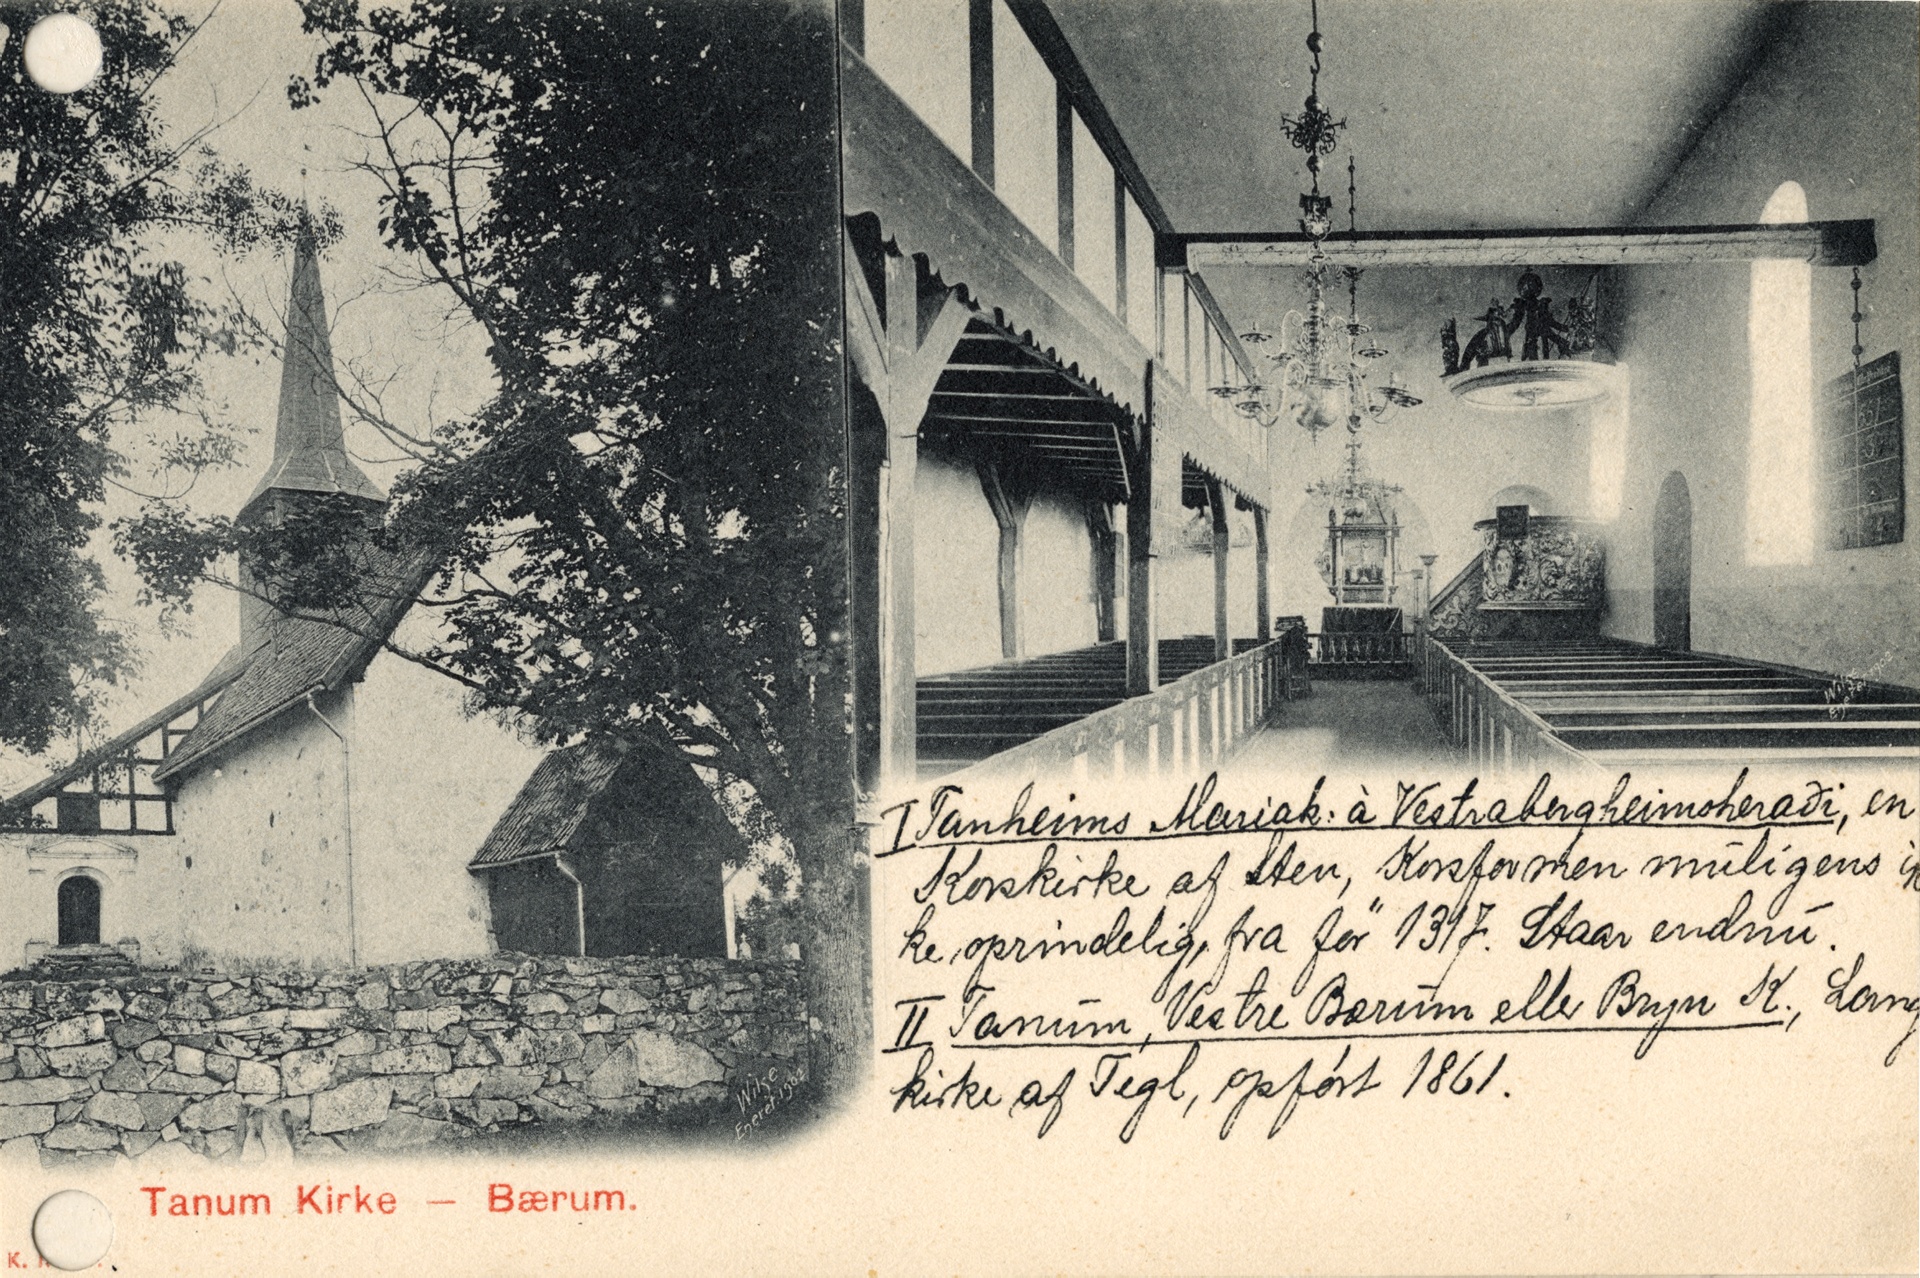 I Tanheims Mariak: à Vestrabergheimsheraði, en
Korskirke af Sten, Korsformen muligens ik
ke oprindelig, fra før 1317. Staar endnu.
II Tanum, Vestre Bærum eller Bryn K., Lang
kirke af Tegl, opført 1861.
Wilse
Eneret 1902
Wilse
Tanum Kirke — Bærum.
K.